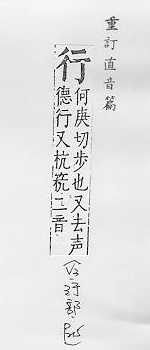 重訂直音篇
行
何庚切步也又去声
德行又杭二音
行部